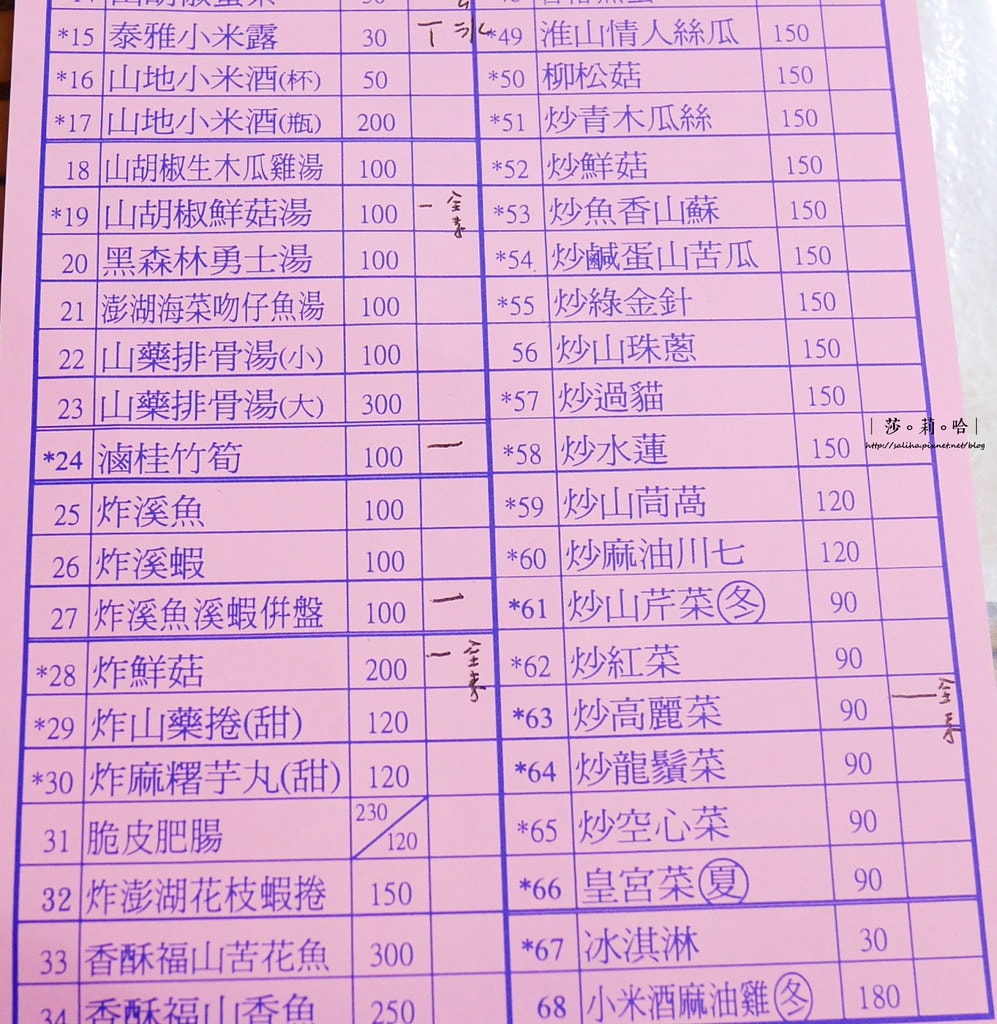 *15 泰雅小米露 30 丅 冰
*16 山地小米酒(杯) 50
*17 山地小米酒(瓶) 200
18 山胡椒生木瓜雞湯 100
*19 山胡椒鮮菇湯 100 一 全素
20 黑森林勇士湯 100
21 澎湖海菜吻仔魚湯 100
22 山藥排骨湯(小) 100
23 山藥排骨湯(大) 300
*24 滷桂竹筍 100 一
25 炸溪魚 100
26 炸溪蝦 100
27 炸溪魚溪蝦併盤 100 一
*28 炸鮮菇 200 一 全素
*29 炸山藥捲(甜) 120
*30 炸麻糬芋丸(甜) 120
31 脆皮肥腸 230/120
32 炸澎湖花枝蝦捲 150
33 香酥福山苦花魚 300
34 香酥福山香魚 250
*49 淮山情人絲瓜 150
*50 柳松菇 150
*51 炒青木瓜絲 150
*52 炒鮮菇 150
*53 炒魚香山蘇 150
*54 炒鹹蛋山苦瓜 150
*55 炒綠金針 150
56 炒山珠蔥 150
*57 炒過貓 150
*58 炒水蓮 150
*59 炒山茼萵 120
*60 炒麻油川七 120
*61 炒山芹菜冬 90
*62 炒紅菜 90
*63 炒高麗菜 90 一 全素
*64 炒龍鬚菜 90
*65 炒空心菜 90
*66 皇宮菜夏 90
*67 冰淇淋 30
68 小米酒麻油雞冬 180
|莎。莉。哈|
http://saliha.pixnet.net/blog